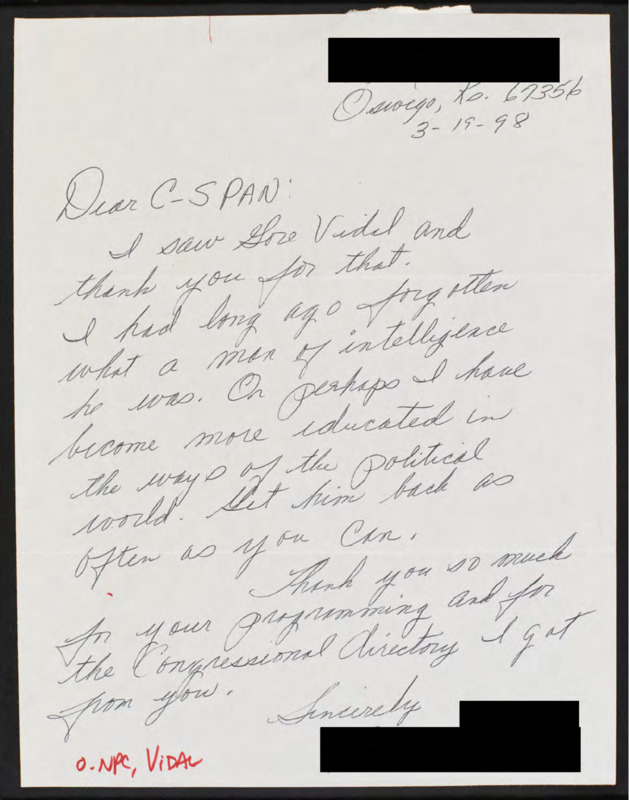 Oswego, Ks. 67356
3-19-98
Dear C-SPAN:
I saw Gore Vidal and
thank you for that.
I had long ago forgotten
what a man of intelligence
he was. Or perhaps I have
become more educated in
the ways of the political
world. Get him back as
often as you can.
Thank you so much
for your programming and for
the Congressional directory I got
from you.
Sincerely
O-NPC, ViDAL